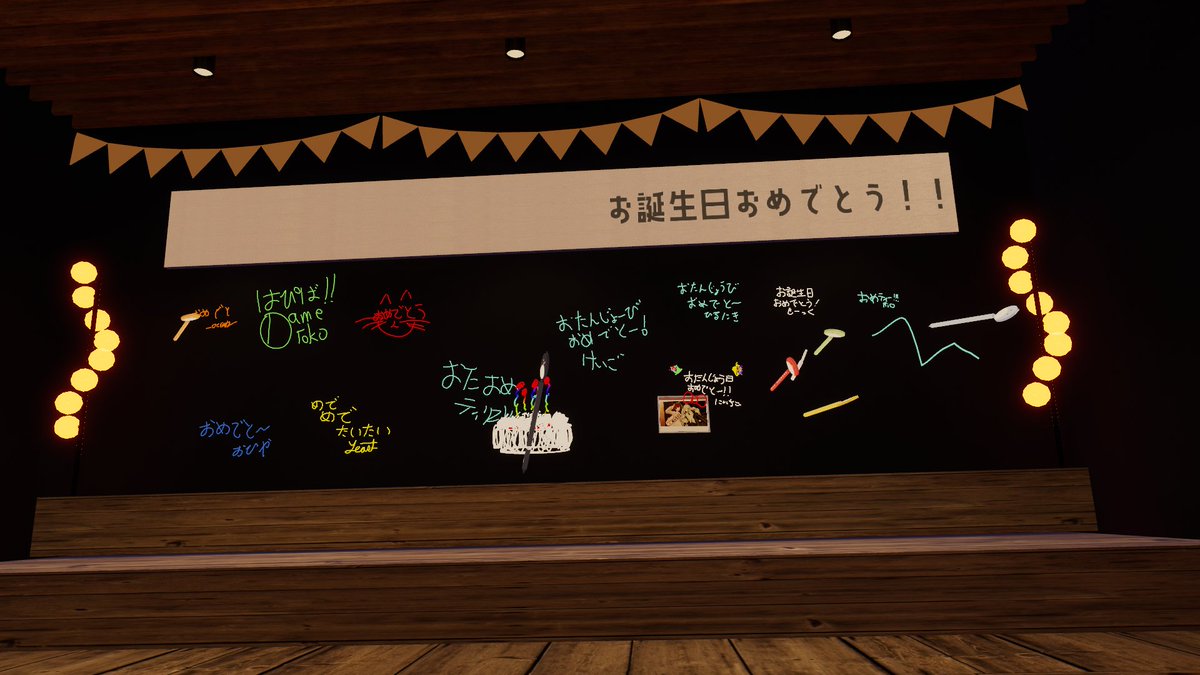 お誕生日おめでとう！！
おめでと
はぴば!!
Dame
roko
おめでとう
おたんじょーび
おめーでとー!
けいご
おたんじょうび
おめでとー
ひるにき
お誕生日
おめでとう!
おたおめ
おたんじょう日
おめでとー!!
おめでと〜
おひや
めで
めで
たいたい